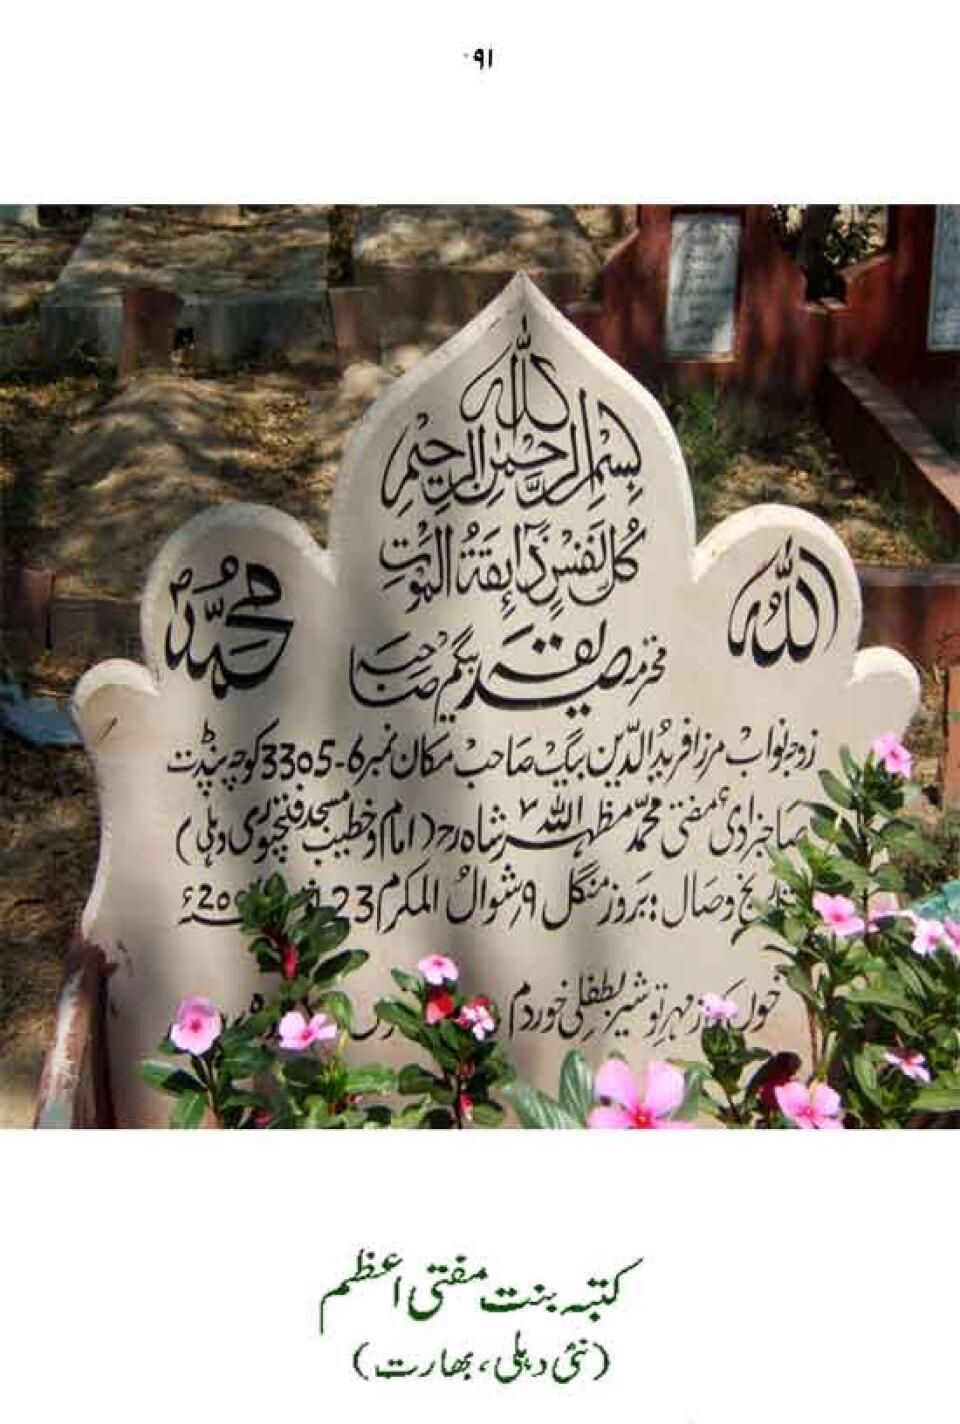 ۰۹۱
بِسْمِ اللّٰهِ الرَّحْمٰنِ الرَّحِيْمِ
كُلُّ نَفْسٍ ذَآئِقَةُ الْمَوْتِ
اللّٰه
مُحَمَّد
محترمہ صدیقہ بیگم صاحبہ
زوجہ نواب مرزا فریدُ الدّین بیگ صاحب مکان نمبر 6-3305 کوچہ پنڈت
صاحبزادیٔ مفتی محمّد مظہر اللہ شاہؒ (امام و خطیب مسجد فتحپوری دہلی)
تاریخ وصال: بروز منگل ۹ شوالُ المکرم 23
خوں مہر تو شیر بطفلی خوردم
کتبہ بنت مفتی اعظم
(نئی دہلی، بھارت)